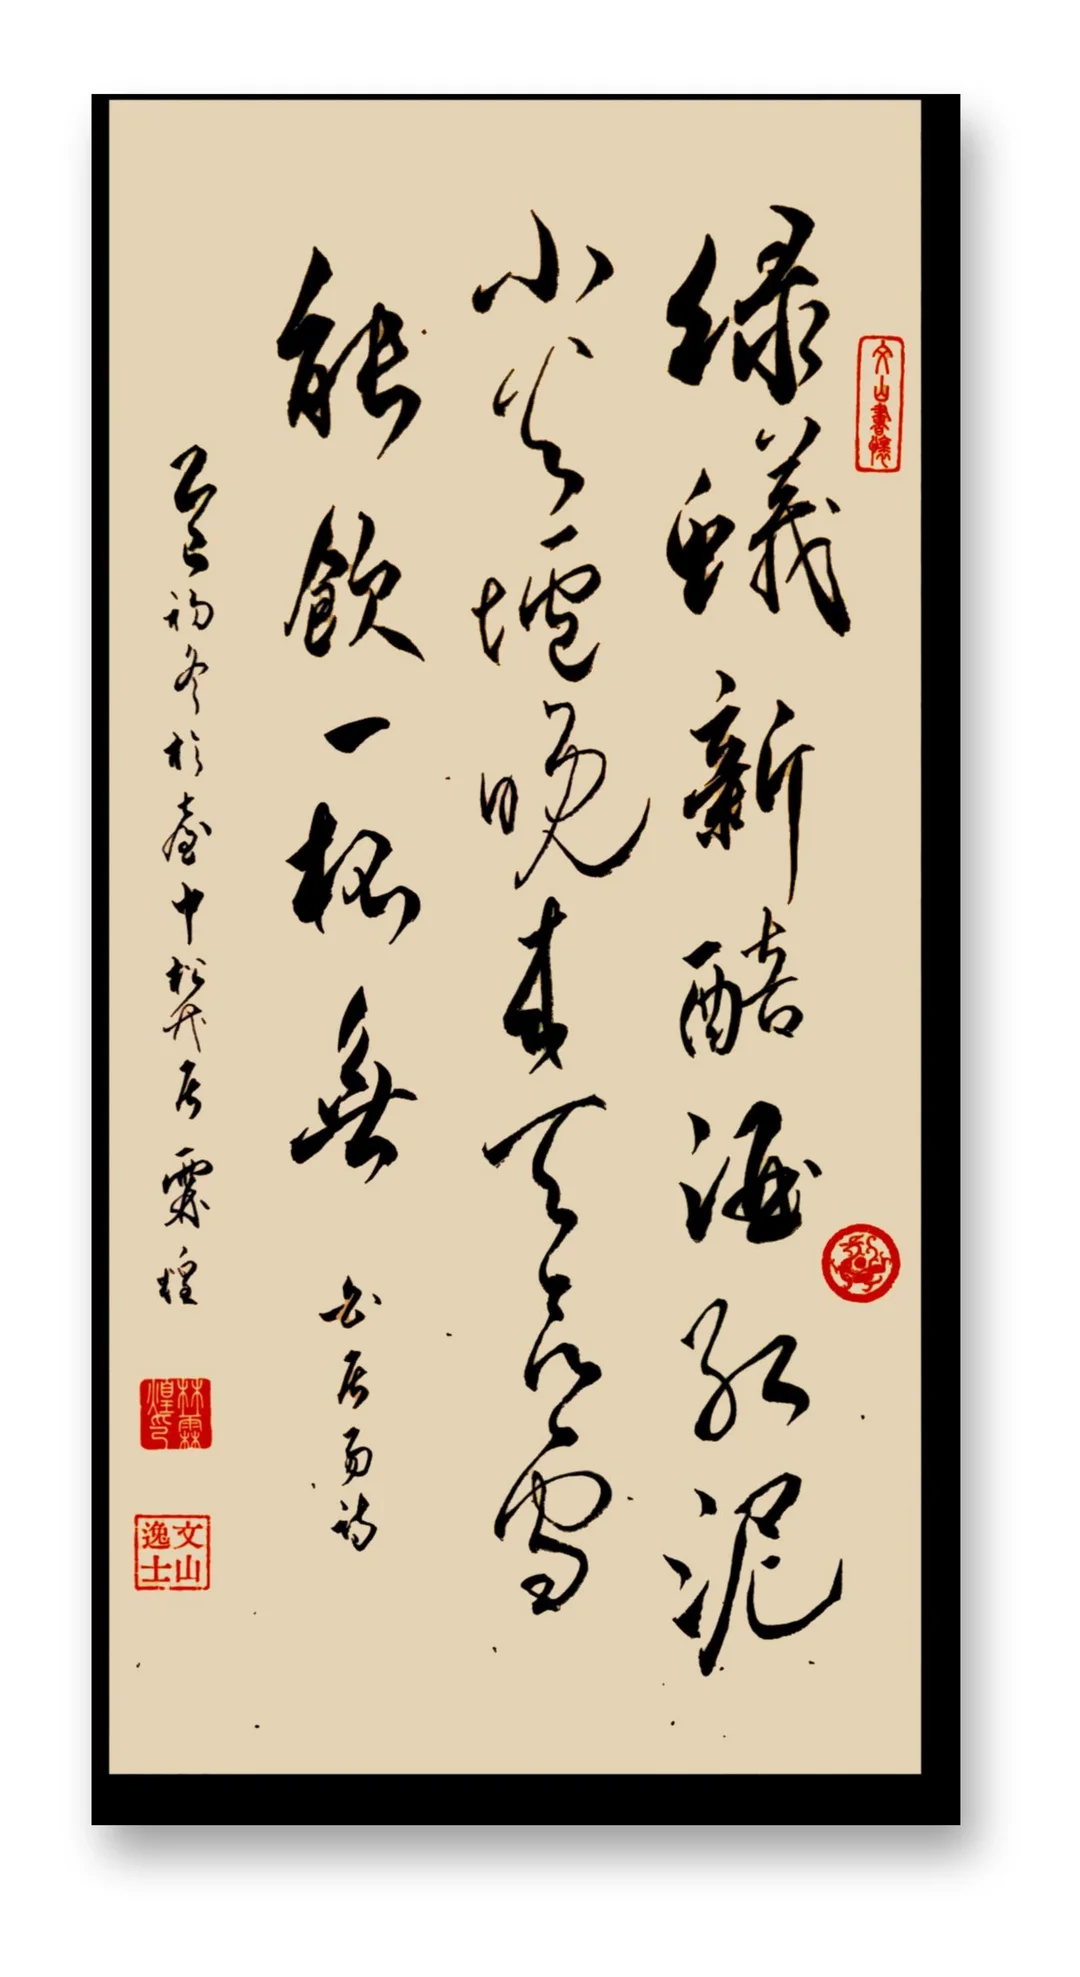 文山書懷
綠蟻新醅酒紅泥
小火爐晚來天欲雪
能飲一桮無 白居易詩
乙巳初冬於臺中松居霖煌
林霖煌印
文山逸士